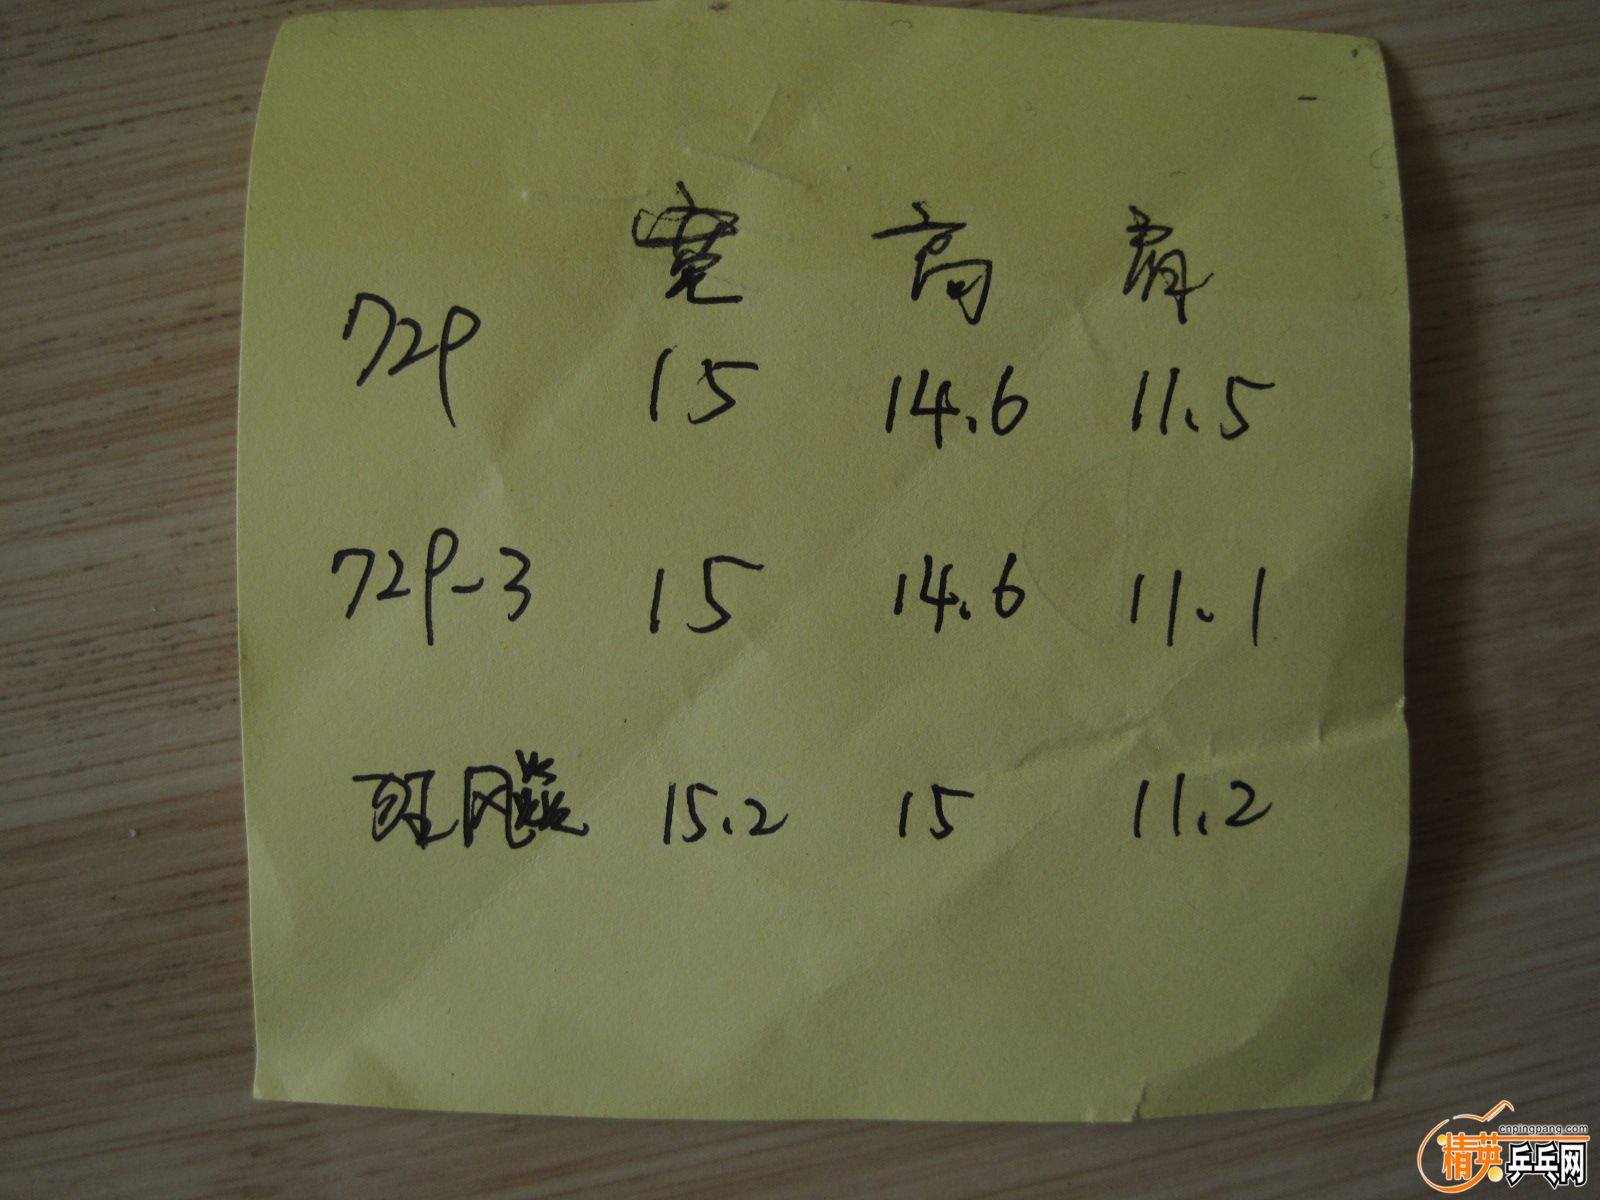 宽 高 肩
729 15 14.6 11.5
729-3 15 14.6 11.1
狂飚 15.2 15 11.2
cnpingpang.com
精英乒乓网